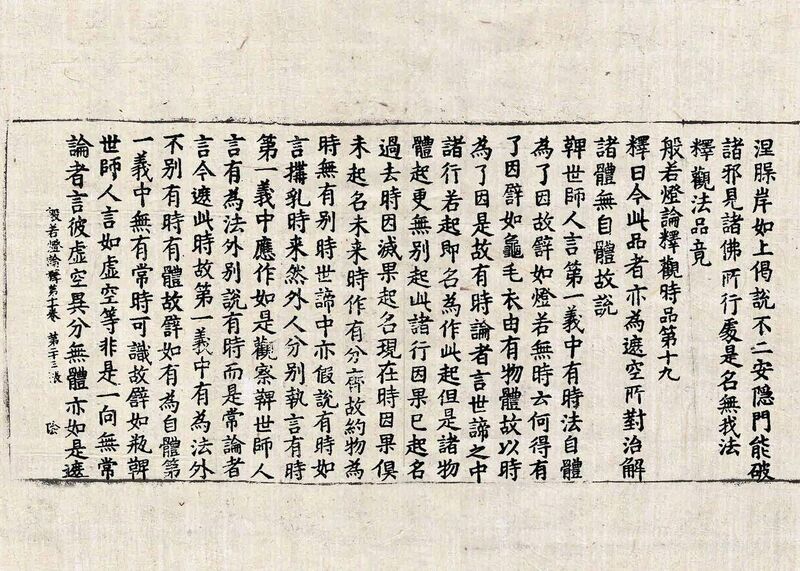 涅脲岸如上偈說不二安隱門能破
諸邪見諸佛所行處是名無我法
釋觀法品竟
般若燈論釋觀時品第十九
釋曰今此品者亦為遮空所對治解
諸體無自體故說
鞞世師人言第一義中有時法自體
為了因故譬如燈若無時云何得有
了因譬如龜毛衣由有物體故以時
為了因是故有時論者言世諦之中
諸行若起即名為作此起但是諸物
體起更無別起此諸行因果已起名
過去時因滅果起名現在時因果俱
未起名未來時作有分齊故約物為
時無有別時世諦中亦假說有時如
言搆乳時來然外人分別執言有時
第一義中應作如是觀察鞞世師人
言有為法外別說有時而是常論者
言今遮此時故第一義中有為法外
不別有時有體故譬如有為自體第
一義中無有常時可識故譬如瓶鞞
世師人言如虛空等非是一向無常
論者言彼虛空異分無體亦如是遮
般若燈論釋第十一卷 第二十三張 陰